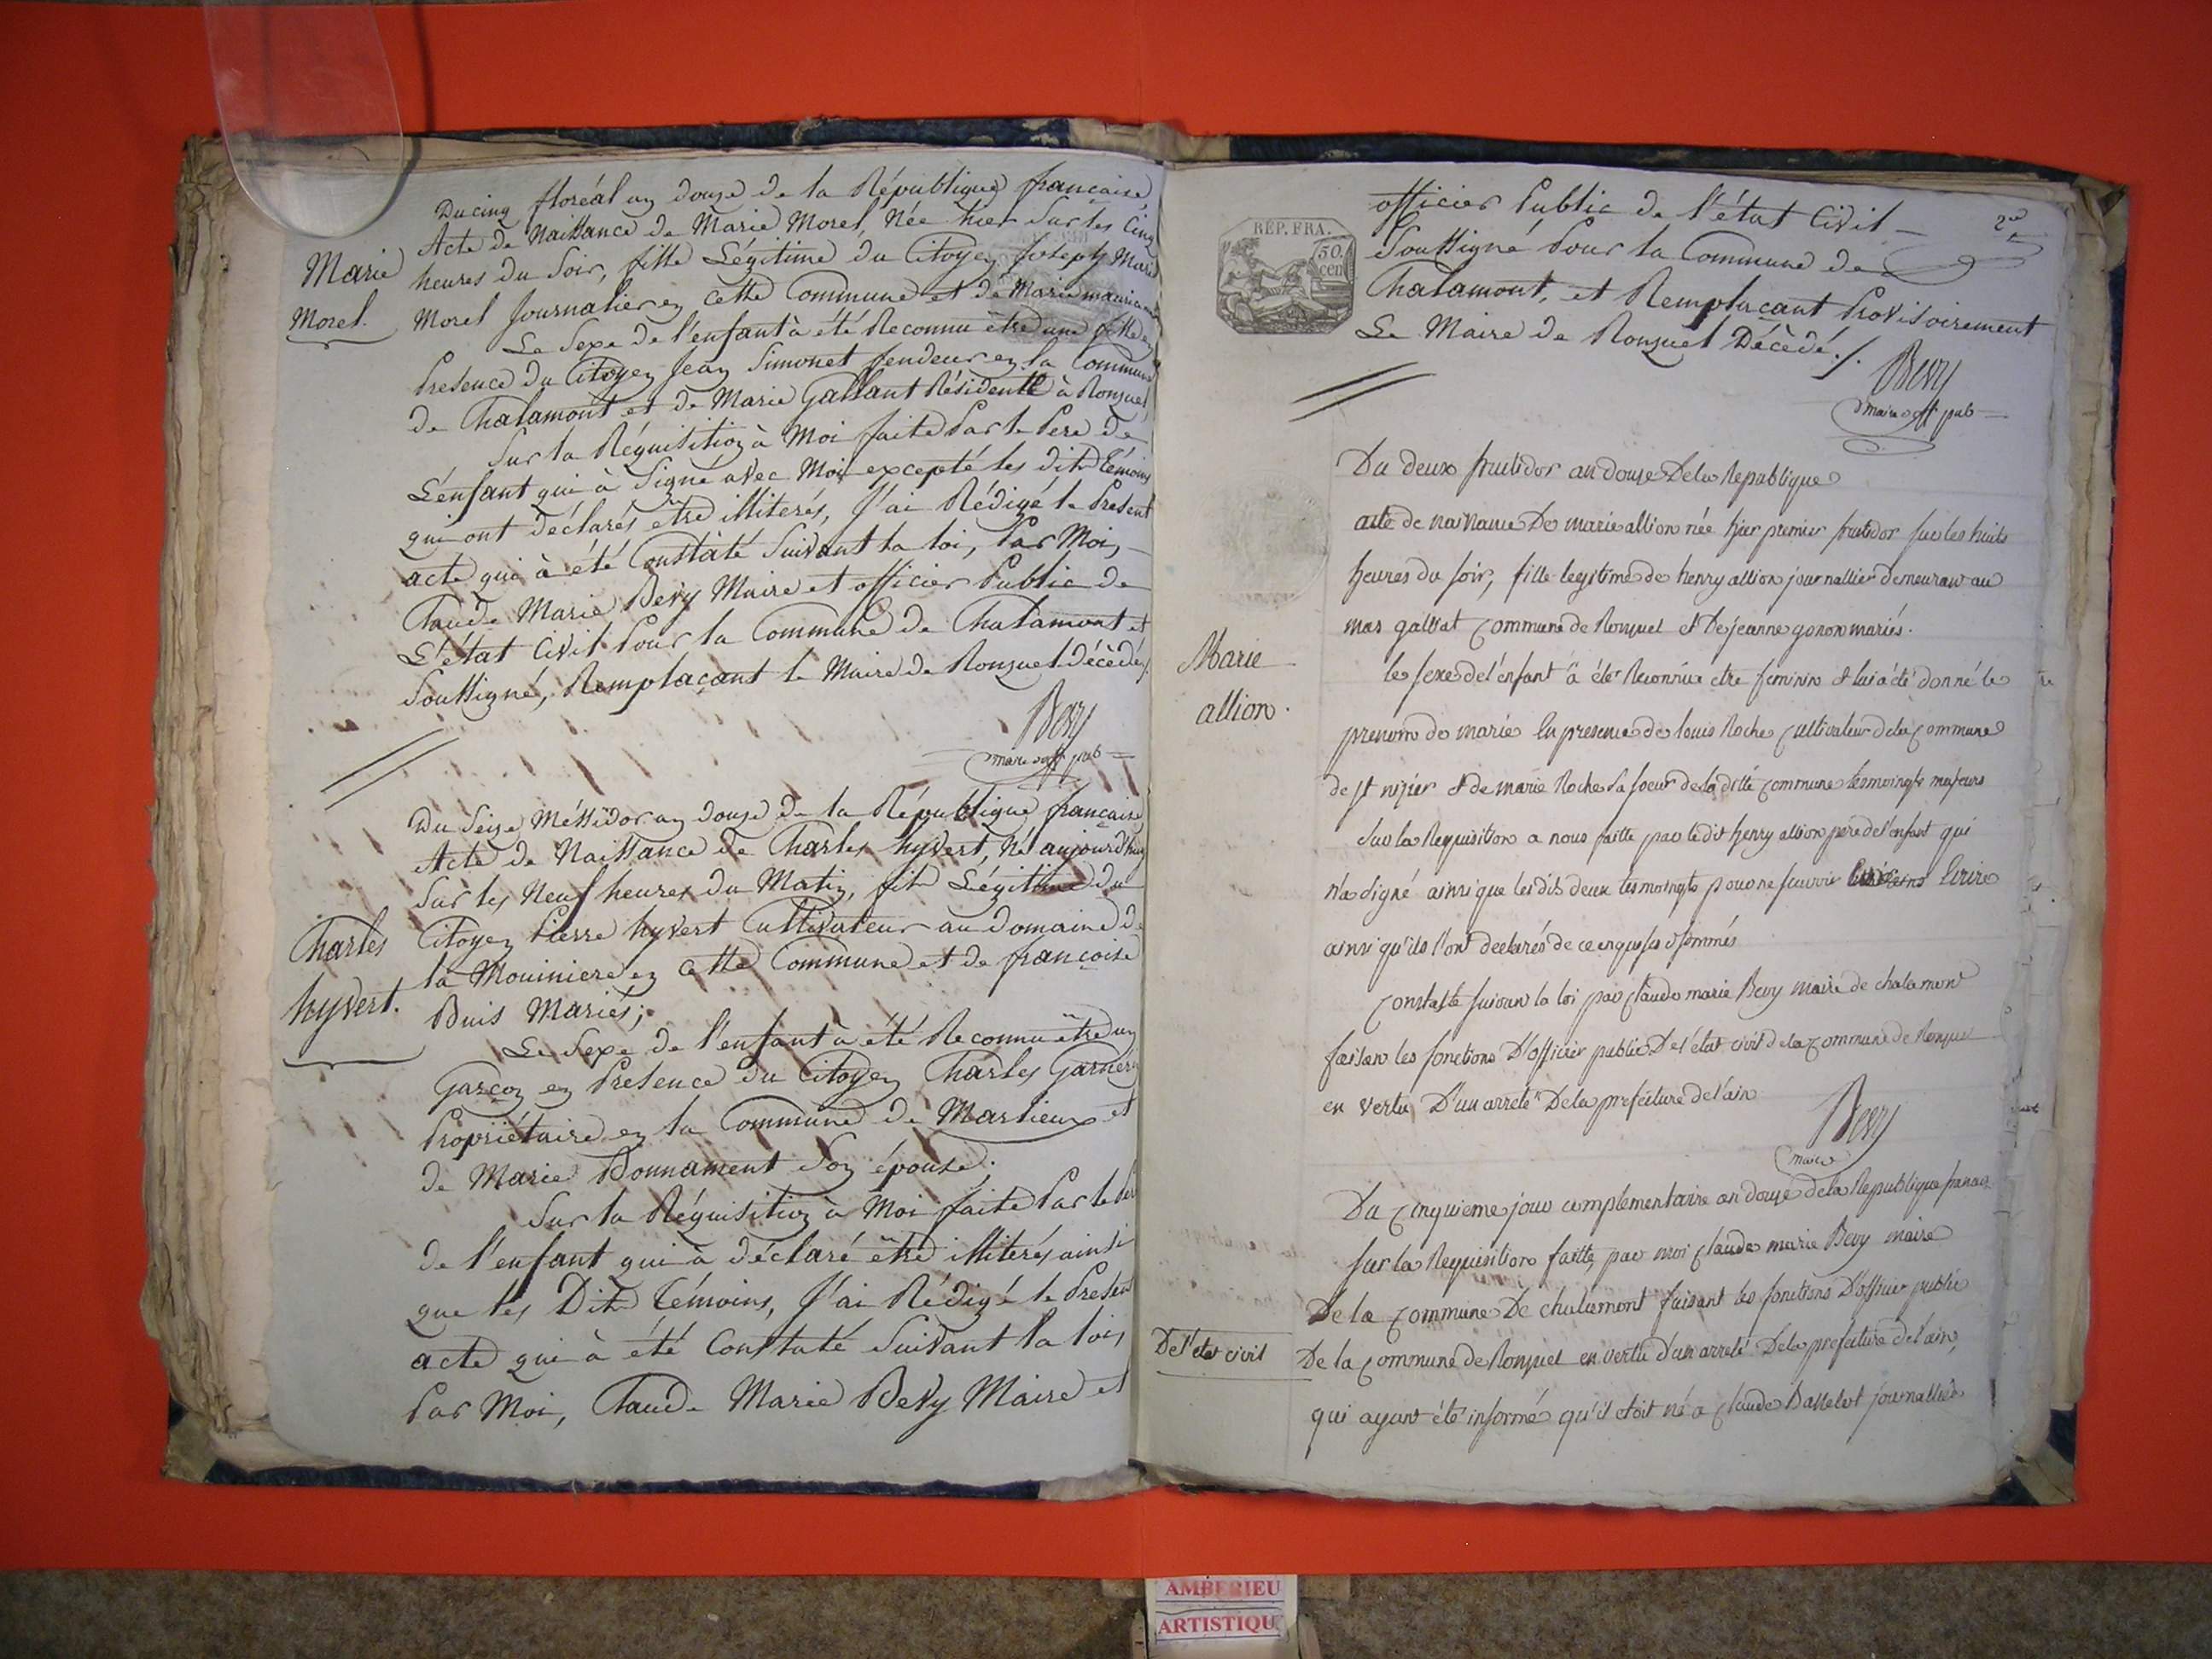 Du cinq floréal an douze de la République française
Acte de Naissance de Marie Morel, Née hier sur les Cinq
heures du Soir, fille Légitime du Citoyen Joseph Marie
Marie
Morel.
Morel Journalier en cette Commune et de Marie
Le Sexe de l'enfant à été Reconnu être une fille en
Présence du Citoyen Jean Simonet fendeur en la Commune
de Chalamont et de Marie Gallant Résidente à Ronzuel
Sur la Réquisition à Moi faite Par le Pere de
L'enfant qui à Signé avec Moi excepté les dits Témoins
qui ont déclarés être illiterés, J'ai Rédigé le Présent
acte qui à été Constaté Suivant la loi, Par Moi,
Claude Marie Bevy Maire et officier Public de
L'état Civil Pour la Commune de Chalamont et
Soussigné, Remplaçant le Maire de Ronzuel Décédé ./.
Bevy
maire off pub
Du Seize Méssidor an douze de la République française
Acte de Naissance de Charles hyvert, Né aujourd'huy
Sur les Neuf heures du Matin, fils Légitime du
Charles
hyvert.
Citoyen Pierre hyvert Cultivateur au Domaine de
la Mouiniere en cette Commune et de françoise
Buis Mariés;
Le Sexe de l'enfant à été Reconnu être un
Garçon en Présence du Citoyen Charles Garnery
Propriétaire en la Commune de Marlieux et
de Marie Bonnament Son épouse.
Sur la Réquisition à Moi faite Par le Pere
de l'enfant qui à déclaré être illiterés ainsi
que les Dits Témoins, J'ai Rédigé le Présent
acte qui à été Constaté Suivant la loi,
Par Moi, Claude Marie Bevy Maire et
RÉP. FRA.
50.
cen
2
officier Public de l'état Civil
Soussigné Pour la Commune de
Chalamont, et Remplaçant Provisoirement
Le Maire de Ronzuel Décédé ./.
Bevy
maire off pub
Du deux fructidor an douze De la Republique
acte de naissance De marie allion née hier premier fructidor sur les huits
heures du soir, fille legitime de henry allion journallier demeurant au
mas gallat commune de Ronzuel et De jeanne gonon mariés.
Marie
allion.
le sexe de l'enfant à été Reconnüe etre feminin et lui à été donné le
prenom de marie En presence de louis Roche cultivateur de la commune
de st nizier et de marie Roche sa soeur de la ditte commune tesmoingts majeurs
sur la Requisition a nous faitte par le dit henry allion pere de l'enfant qui
n'a signé ainsi que les dits deux tesmoingts pour ne sçavoir Ecrire
ainsi qu'ils l'ont declarés de ce enquis et sommés
constaté suivant la loi par claude marie Bevy maire de chalamont
faisant les fonctions D'officier public De l'état civil de la commune de Ronzuel
en vertu D'un arreté De la prefecture de l'ain
Bevy
maire
Du cinquieme jour complementaire an douze de la Republique francaise
sur la Requisition faitte, par moi claude marie Bevy maire
De la commune De chalamont faisant les fonctions D'officier public
De l'etat civil
De la commune de Ronzuel en vertu d'un arreté De la prefecture de l'ain,
qui ayant été informé qu'il etoit né a claude journallier
AMBERIEU
ARTISTIQU